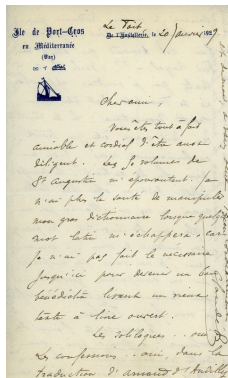 Ile de Port-Cros
en Méditerranée
(Var)
Le Fort
De l'Estissac, le 20 Janvier 1929
Cher ami,
Vous êtes tout à fait
aimable et cordial d'être aussi
diligent. Les 50 volumes de
St Augustin m'épouvantent. Je
n'ai plus la force de manipuler
mon gros dictionnaire lorsque quelque
mot latin m'échappera, car
je n'ai pas fait le nécessaire
jusqu'ici pour devenir un bon
bénédictin lisant un vieux
texte à livre ouvert.
Les Soliloques : oui
Les confessions : oui, dans la
traduction d'Arnaud d'Andilly